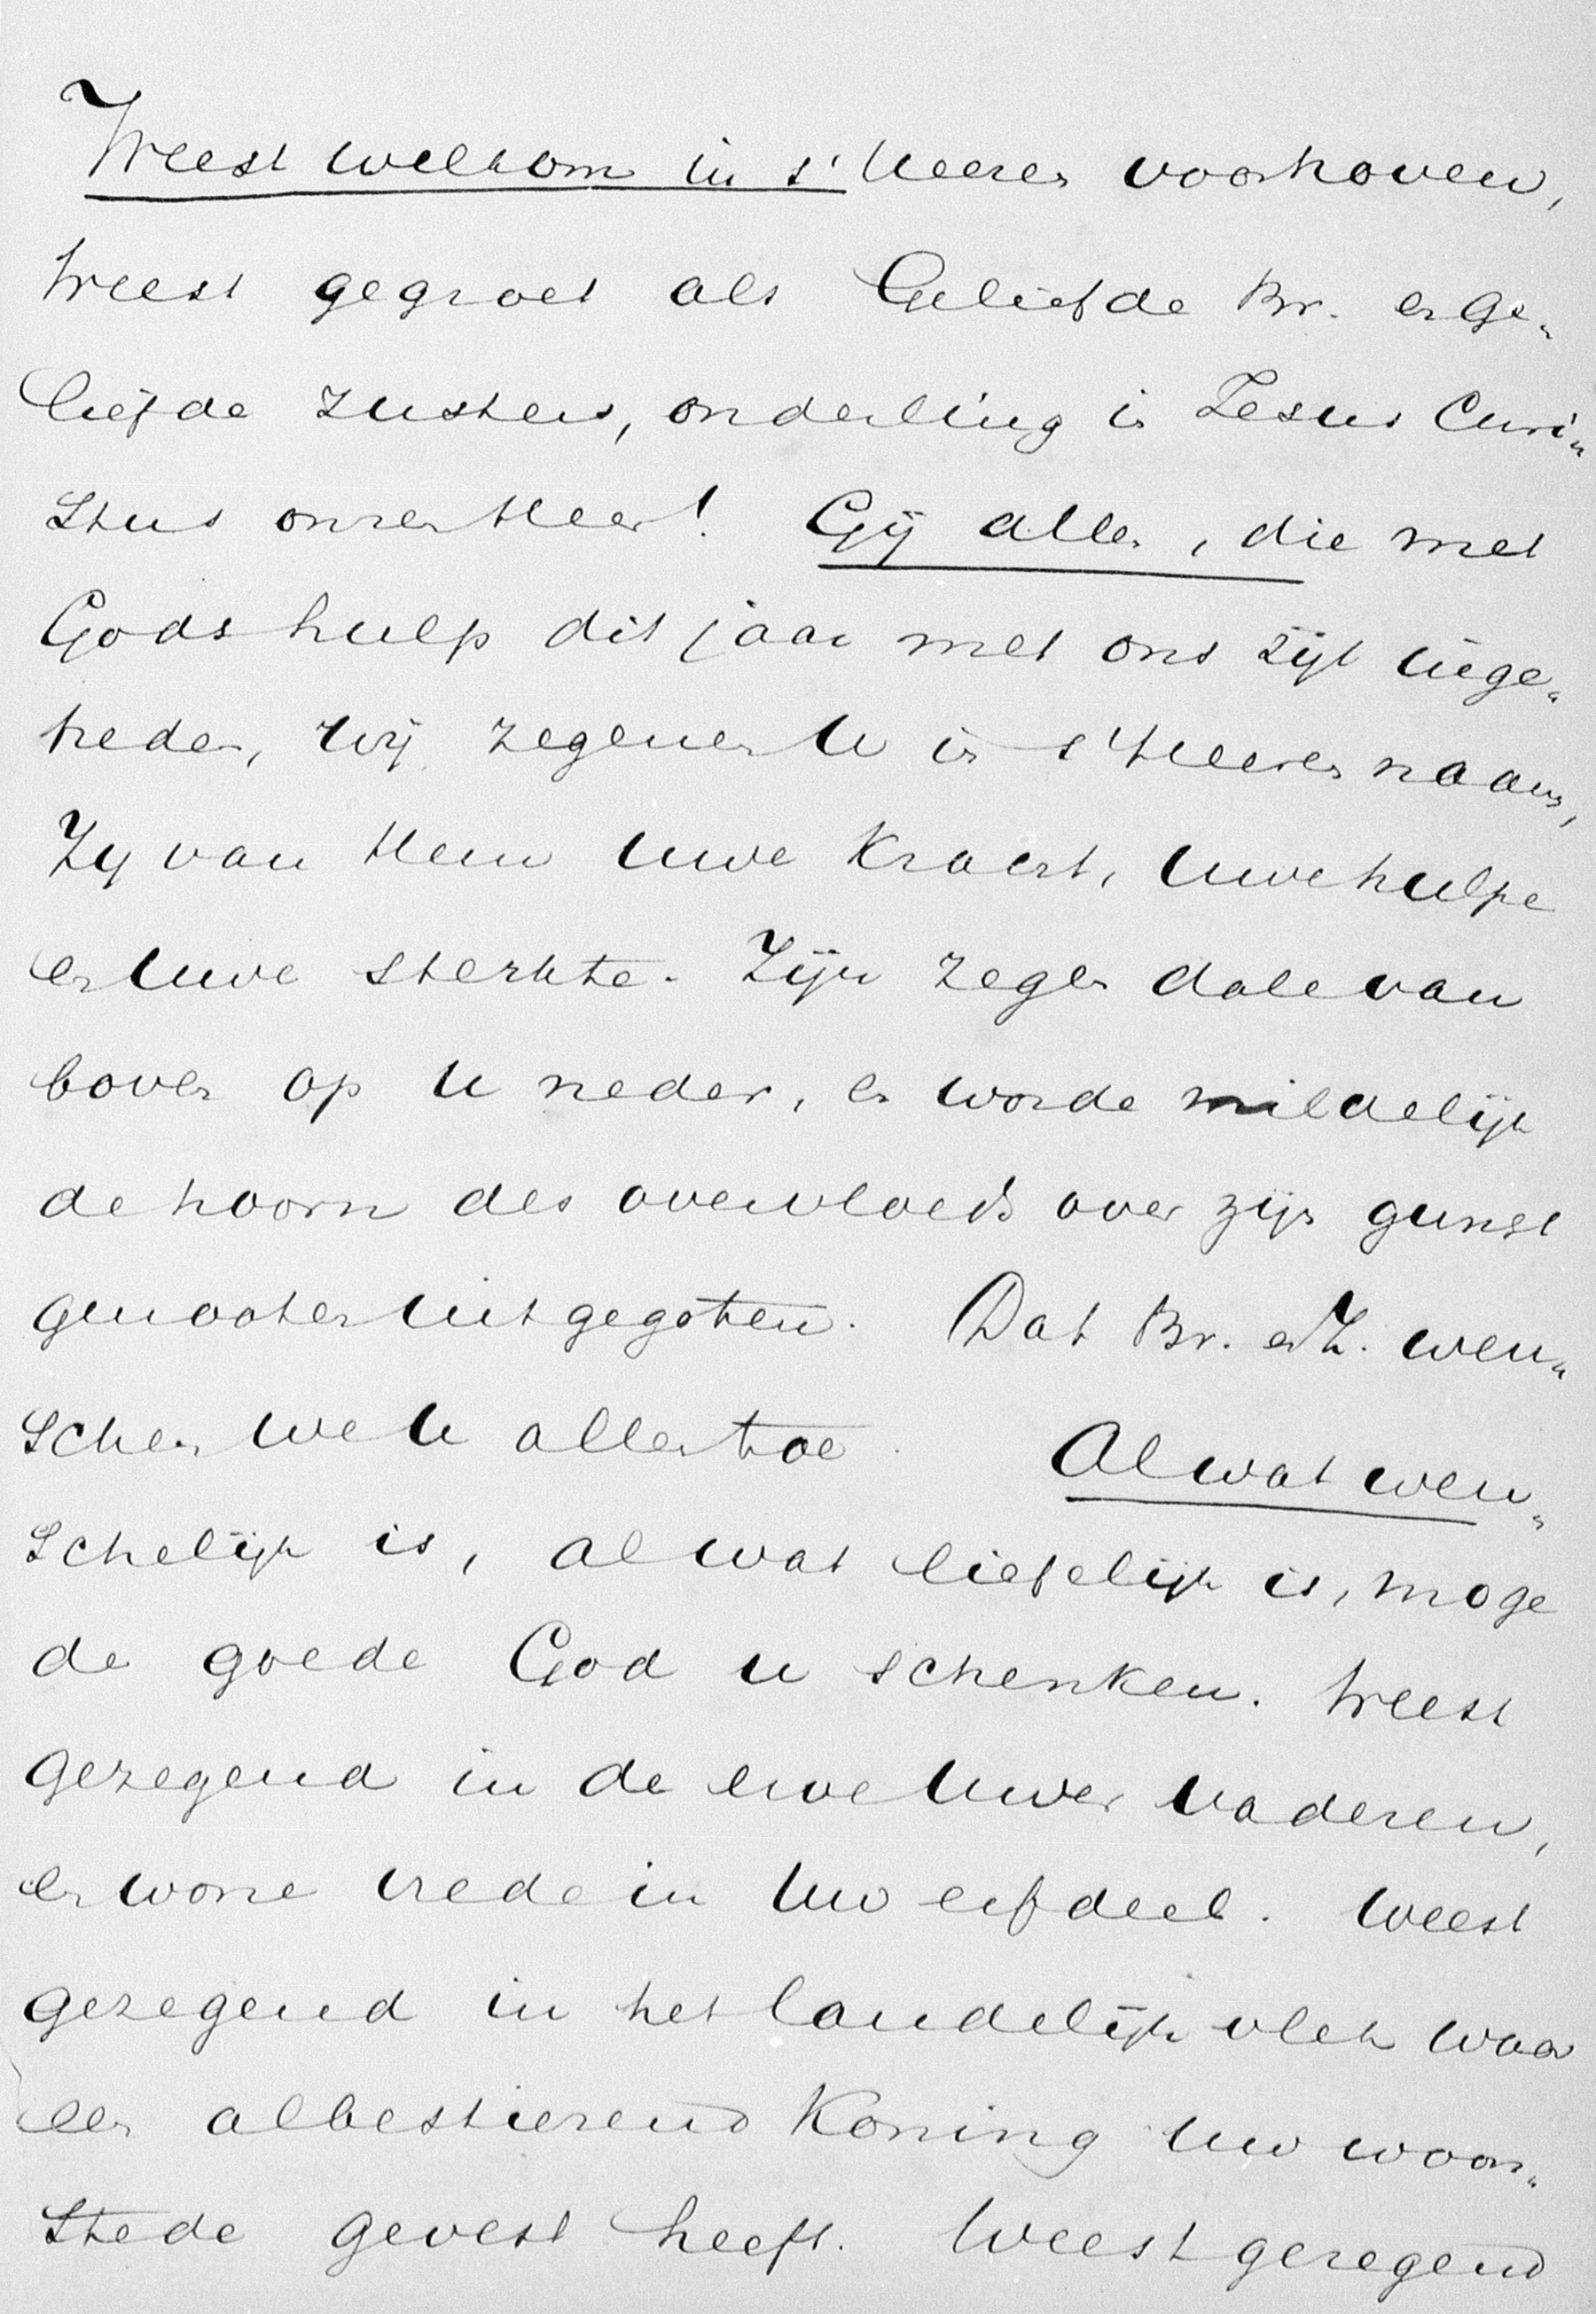 Weest welkom in s' Heeren voorhoven,
Weest gegroet als Geliefde Br. en Ge„
liefde zusters, onderling in Jesus Chri„
stus onzen Heer! Gij allen, die met
Gods hulp dit jaar met ons zijt inge„
treden, wij zegenen U in s'Heeren naam,
Zij van Hem Uwe Kracht, Uwe hulpe
en Uwe sterkte. Zijn zegen dale van
boven op U neder, en worde mildelijk
de hoorn des overvloeds over zijn gunst
genooten uitgegoten. Dat Br. en Z. wen„
schen we U allen toe. Al wat wen„
schelijk is, al wat liefelijk is, moge
de goede God u schenken. Weest
gezegend in de erve Uwer Vaderen,
en wone vrede in Uw erfdeel. Weest
gezegend in het landelijk vlek waar
een albestierend Koning Uw woon„
stede gevest heeft. Weest gezegend